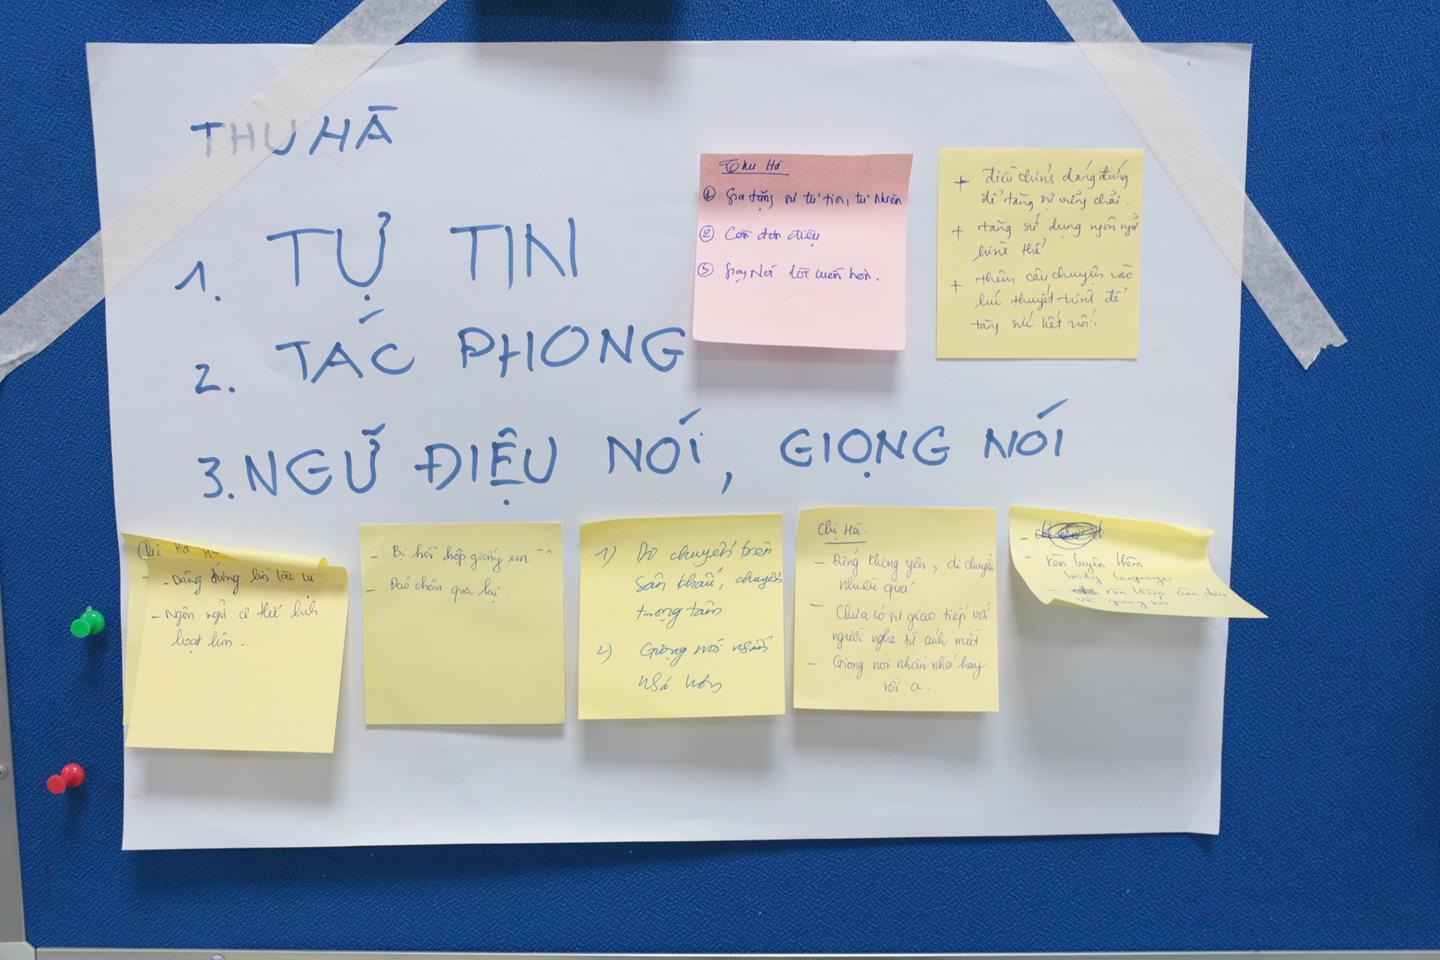 THU HÀ
1. TỰ TIN
2. TÁC PHONG
3. NGỮ ĐIỆU NÓI, GIỌNG NÓI
Thu Hà
① Gia tăng sự tự tin, tự nhiên
② Còn đơn điệu
③
+ điều chỉnh dáng đứng
để tăng sự
+ tăng sử dụng ngôn ngữ
hình thể.
+ thêm câu chuyện vào
lúc thuyết trình để
tăng sự kết nối.
Chị Hà
- Dáng đứng
- Ngôn ngữ cơ thể linh
hoạt hơn.
- Bị hồi hộp giống em ^^
- Đảo chân qua lại.
1) Di chuyển trên
sân khấu, chuyển
trọng tâm
2) Giọng nói nhấn
nhá hơn
Chị Hà.
- Đứng không yên, di chuyển
nhiều quá
- Chưa có sự giao tiếp với
người nghe từ ánh mắt
- Giọng nói nhấn nhá hay
rồi ạ.
- rèn luyện thêm
body language
- rèn thêm
về giọng nói